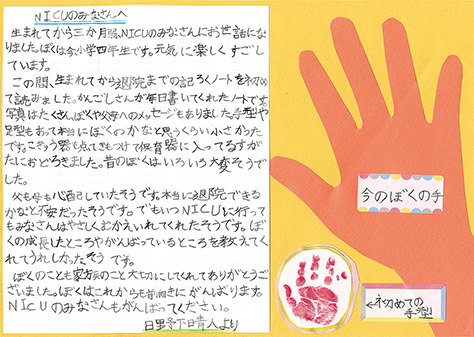 NICUのみなさんへ
生まれてから三か月弱、NICUのみなさんにお世話にな
りました。ぼくは今小学四年生です。元気に楽しくすごし
ています。
この間、生まれてから退院までの記ろくノートを初め
て読みました。かんごしさんが毎日書いてくれたノートです。
写真はたくさん、ぼくや父母へのメッセージもありました。手型や
足型もあって本当にぼくのかなと思うくらい小さかった
です。こきゅう器も点てきもつけて保育器に入ってるすが
たにおどろきました。昔のぼくはいろいろ大変そうで
した。
父も母も心配していたそうです。本当に退院できる
かなと不安だったそうです。でもいつNICUに行って
もみなさんはやさしくむかえいれてくれたそうです。ぼ
くの成長したところやがんばっているところを教えてく
れてうれしかったそうです。
ぼくのことも家族のことも大切にしてくれてありがとうご
ざいました。ぼくはこれからも前向きにがんばります。
NICUのみなさんもがんばってください。
日野下日青人より
今のぼくの手
←初めての
手型